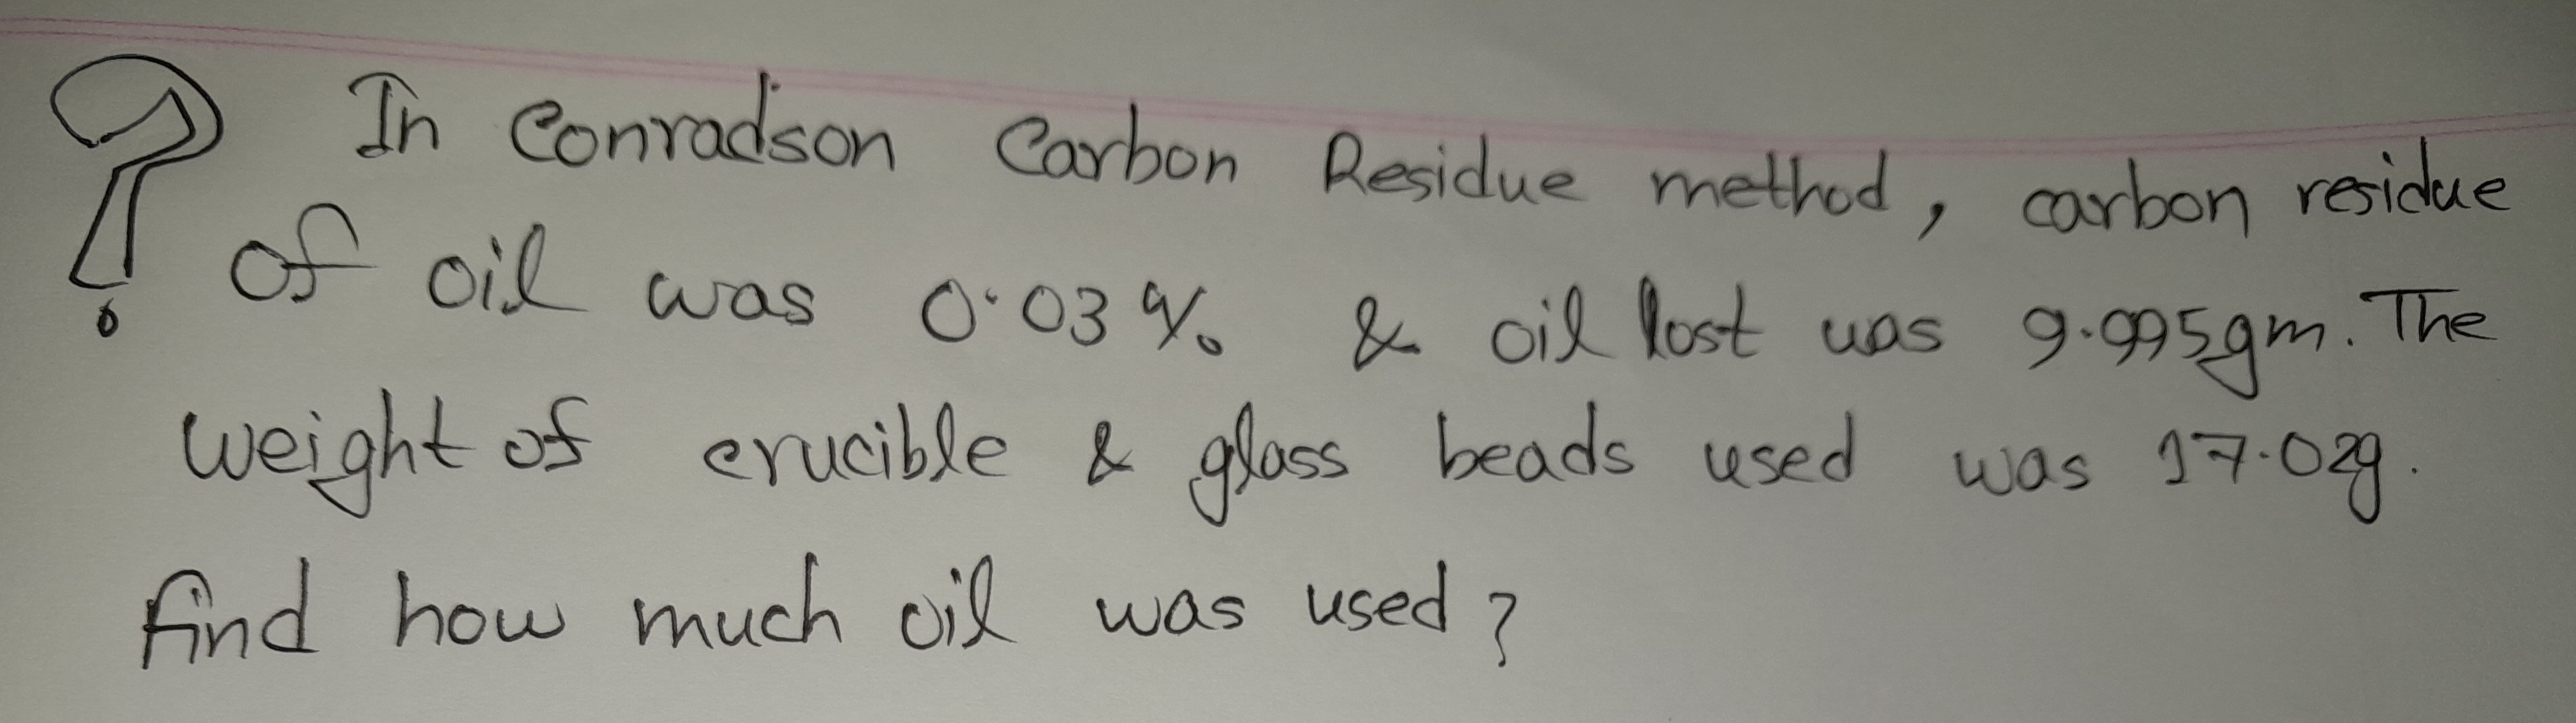 ? In Conradson Carbon Residue method, carbon residue
of oil was 0.03 % & oil lost was 9.995gm. The
weight of crucible & glass beads used was 17.02g.
find how much oil was used?